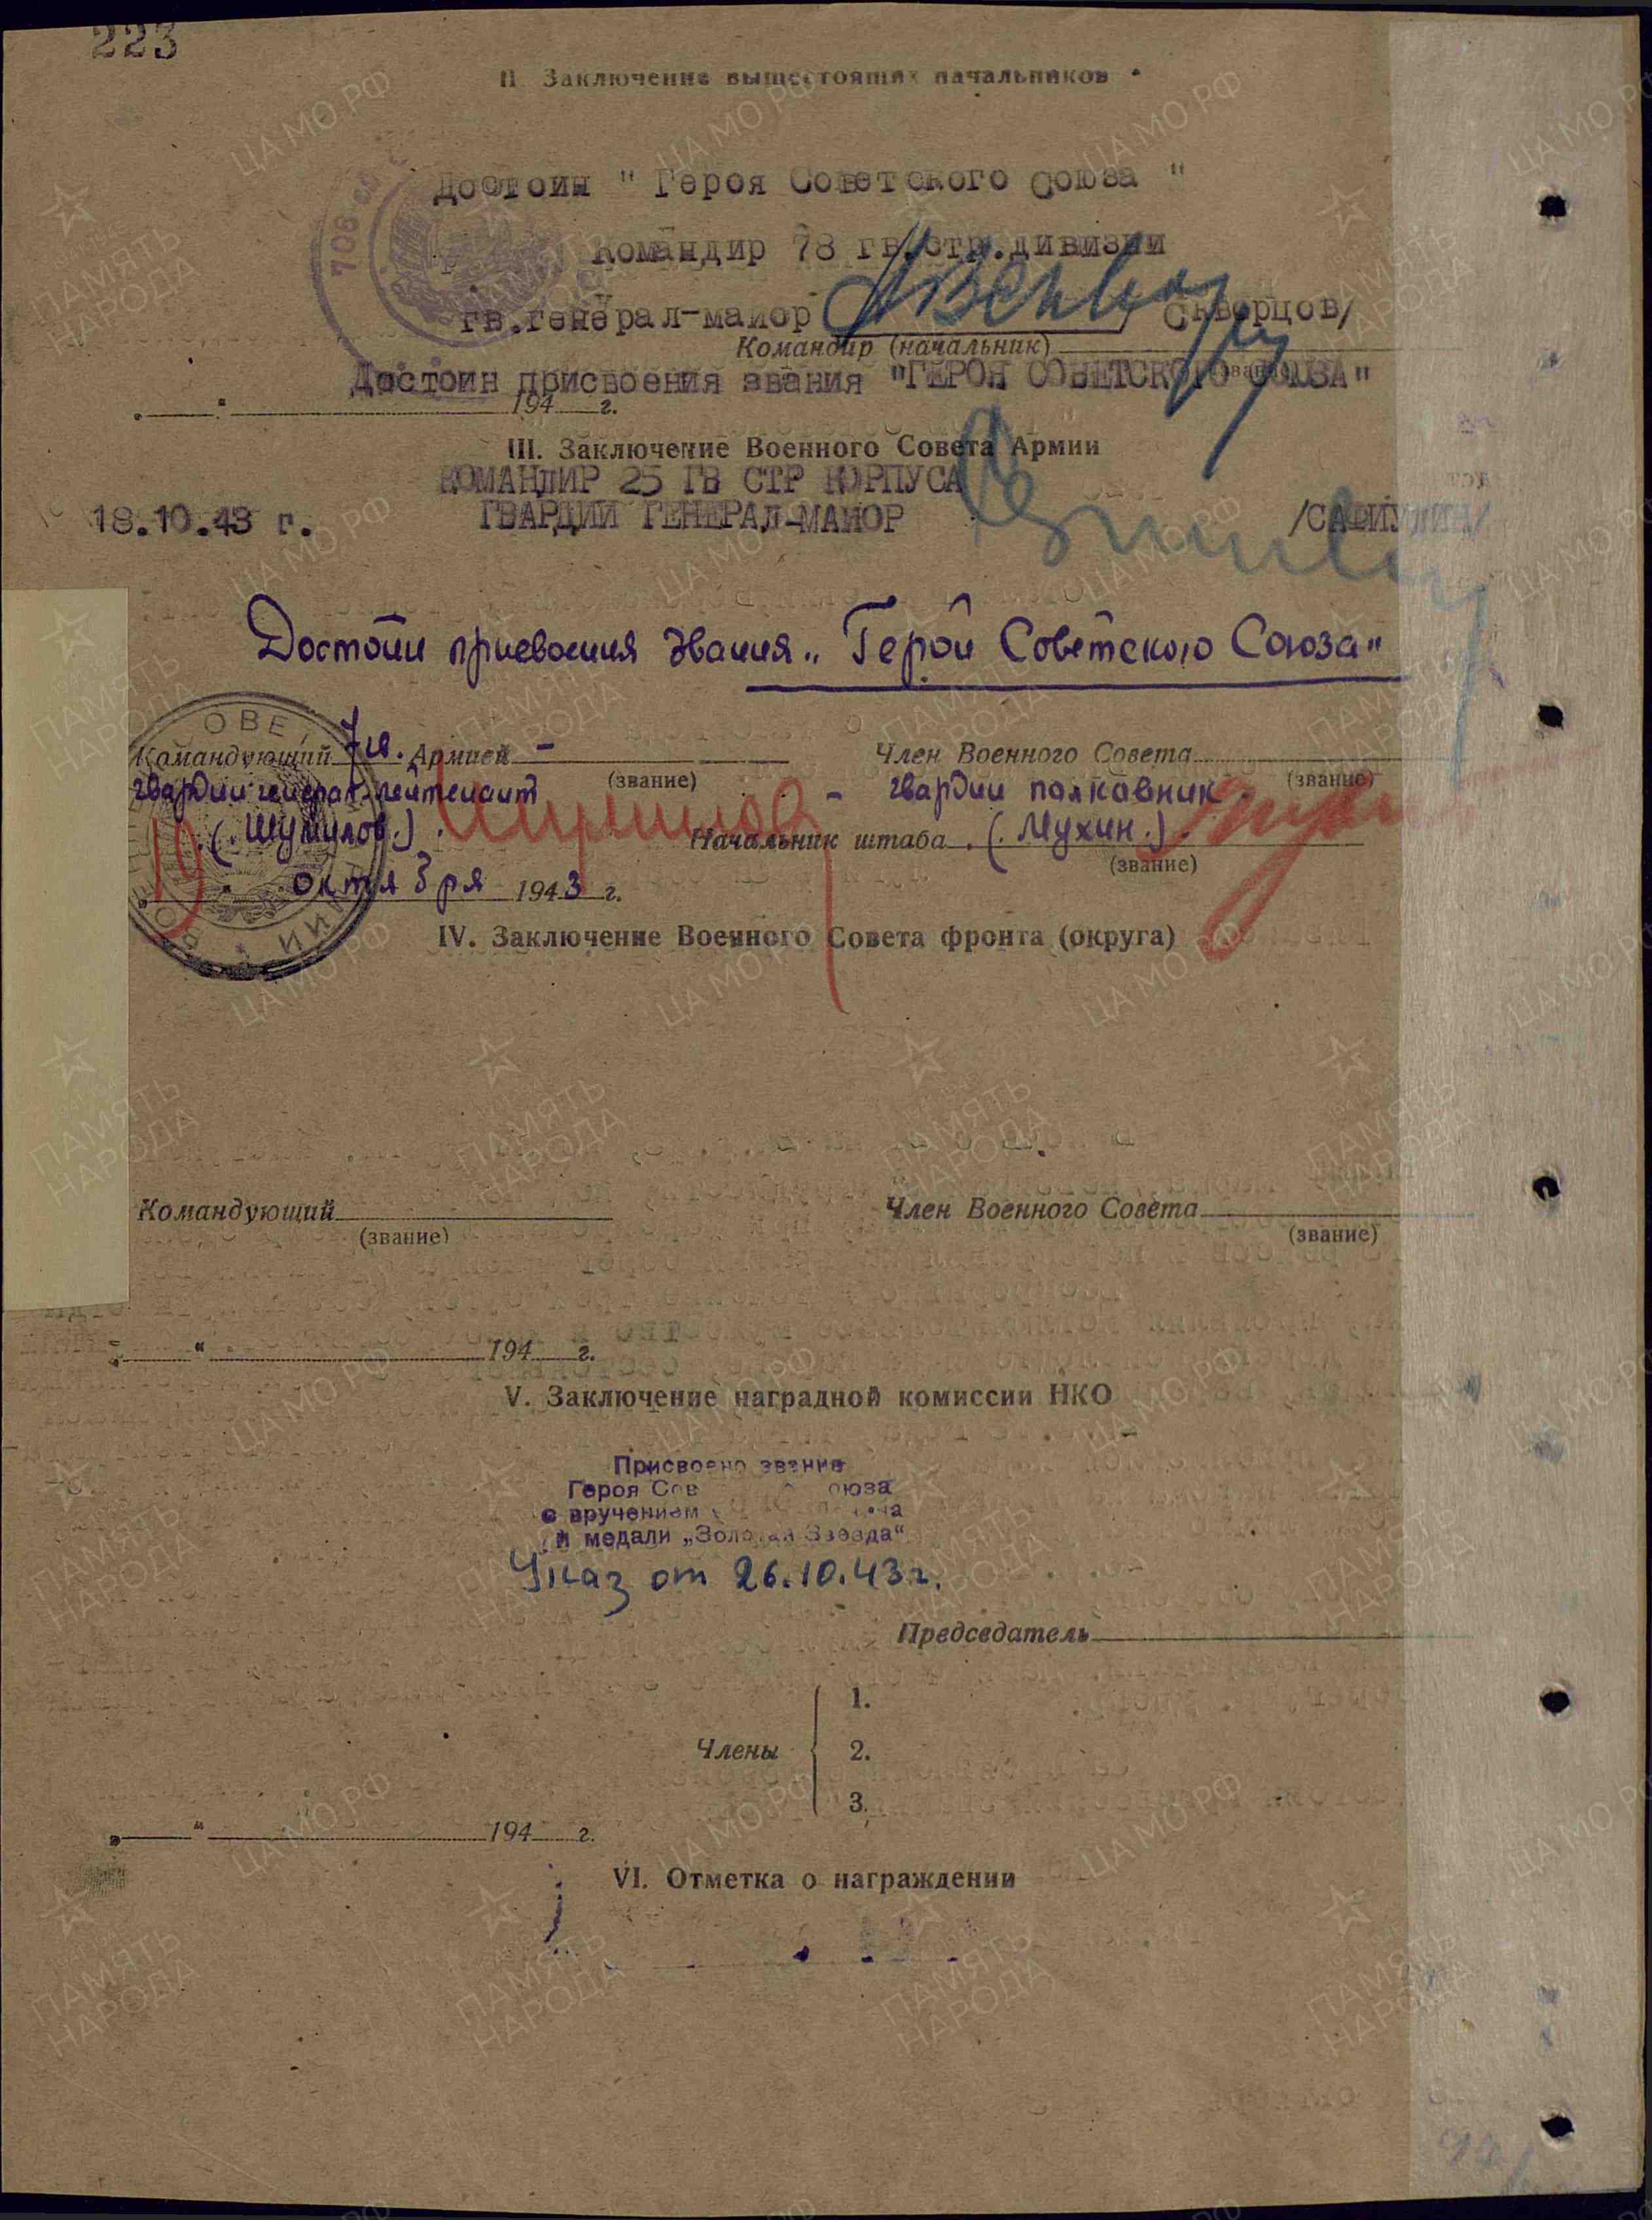 223
II Заключение вышестоящих начальников
Достоин " Героя Советского Союза "
Командир 78 гв.стр.дивизии
гв.генерал-майор / Скворцов/
Командир (начальник)
Достоин присвоения звания "ГЕРОЯ СОВЕТСКОГО СОЮЗА"
„ “ 194 г.
III. Заключение Военного Совета Армии
КОМАНДИР 25 ГВ СТР КОРПУСА
18.10.43 г. ГВАРДИИ ГЕНЕРАЛ-МАЙОР /САФИУЛИН/
Достоин присвоения звания „Герой Советского Союза“
Командующий 7 гв. Армией - Член Военного Совета
(звание) (звание)
гвардии генерал-лейтенант - гвардии полковник
(Шумилов) Шумилов Начальник штаба (Мухин.)
(звание)
19 октября 1943 г.
IV. Заключение Военного Совета фронта (округа)
Командующий Член Военного Совета
(звание) (звание)
„ “ 194 г.
V. Заключение наградной комиссии НКО
Присвоено звание
Героя Сов оюза
с вручением
и медали „Золотая Звезда“
Указ от 26.10.43г.
Председатель
1.
Члены 2.
3.
„ “ 194 г.
VI. Отметка о награждении
ПАМЯТЬ НАРОДА
ЦА МО РФ